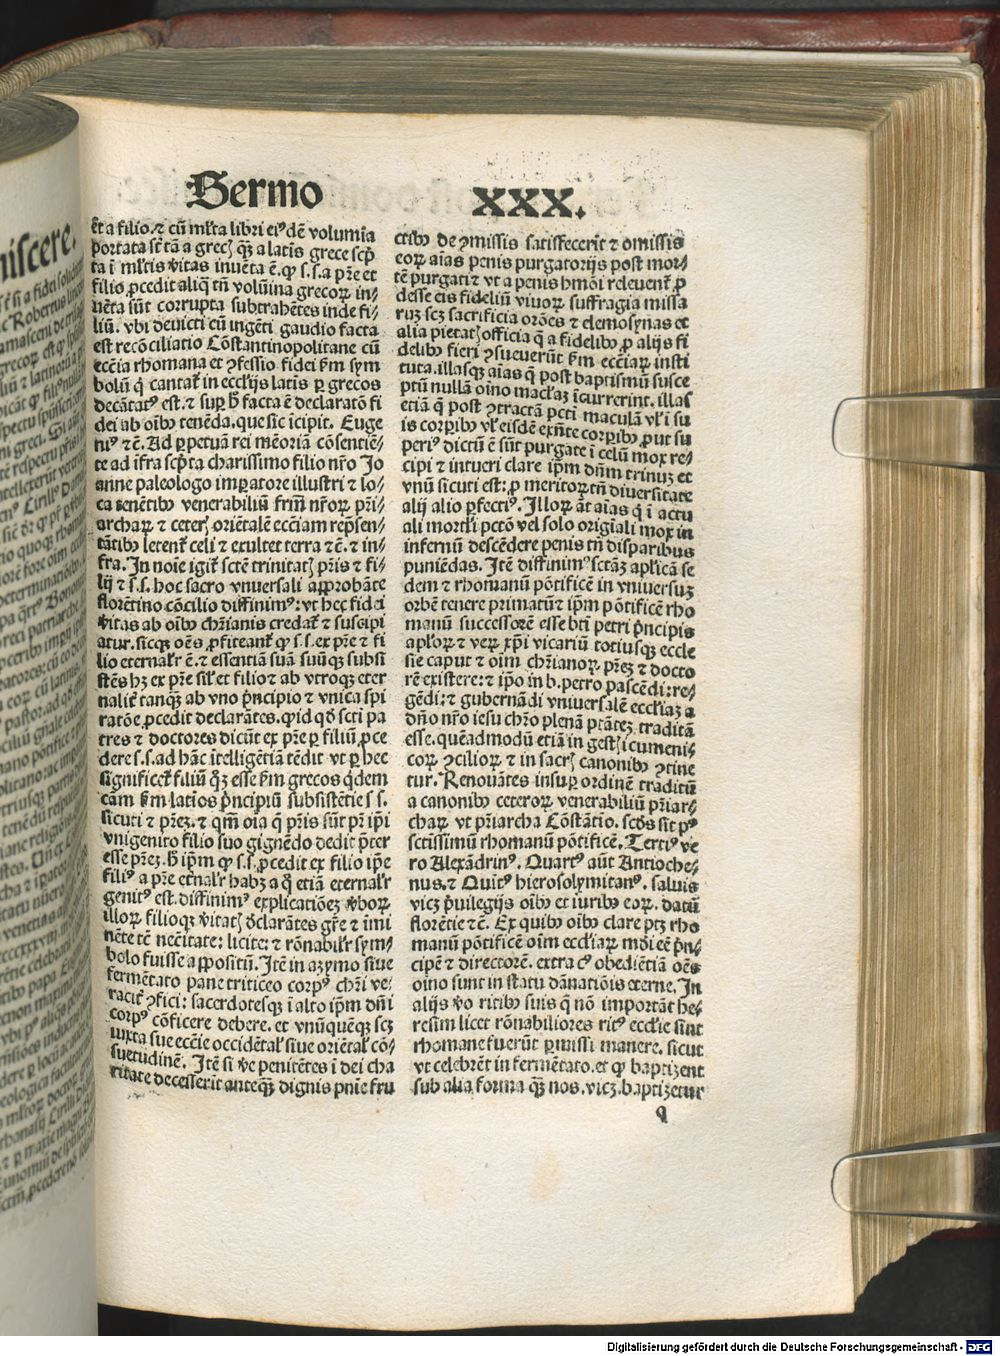 Sermo XXX.
et a filio. ⁊ cū ml'ta libri ei⁹dē volumia
portata st̄ tā a grecꝭ qꝫ a latīs grece scp̄
ta ī ml'tis v̄itas invēta ē. qͥ s.s.a pr̄e et
filio ꝓcedit aliq̄ tn̄ volūina grecoꝝ in-
uēta sūt corrupta subtrahētes inde fi-
liū. vbi deuicti cū ingēti gaudio facta
est recōciliatio Cōstantinopolitane cū
ecc̄ia rhomana et ꝯfessio fidei ẜm sym
bolū q̄ cantat̄ in eccl'ijs latis ꝑ grecos
decātat⁹ est. ⁊ suꝑ h̄ facta ē declaratō fi
dei ab oīb⁹ tenēda. que sic īcipit. Euge
ni⁹ ⁊ c̄. Ad ꝑpetuā rei mēoriā cōsentiē-
te ad īfra scp̄ta charissimo filio nr̄o Jo
anne paleologo imꝑatore illustri ⁊ lo-
ca tenētib⁹ venerabiliū fr̄m nr̄oꝝ pr̄i-
archaꝝ ⁊ ceterꝭ oriētalē ecc̄iam rep̄sen-
tātib⁹ letent̄ celi ⁊ exultet terra ⁊ c̄. ⁊ in-
fra. In noīe igit̄ sctē trinitatꝭ pr̄is ⁊ fi-
lij ⁊ s.s. hoc sacro vniuersali approbāte
florētino cōcilio diffinim⁹: vt hec fidei
v̄itas ab oīb⁹ chr̄ianis credat̄ ⁊ suscipi
atur. sicqꝫ oēs ꝓfiteant̄ qͥ s.s.ex pr̄e ⁊ fi
lio eternal'r ē. ⁊ essentiā suā suūqꝫ subsi
stēs hꝫ ex pr̄e sil' et filio ⁊ ab vtroqꝫ eter
nalit̄ tanqꝫ ab vno p̄ncipio ⁊ vnica spi
ratōe ꝓcedit declarātes. qͥd qd̄ sct̄i pa
tres ⁊ doctores dicūt ex pr̄e ꝑ filiū ꝓce
dere s.s.ad hāc ītelligētiā tēdit vt ꝑ hec
significet̄ filiū q̄ꝫ esse ẜm grecos qͥdem
cām ẜm latīos p̄ncipiū subsistētie s s.
sicuti ⁊ pr̄eꝫ. ⁊ qm̄ oīa q̄ pr̄is sūt pr̄ ip̄i
vnigenito filio suo gignēdo dedit p̄ter
esse pr̄eꝫ. h̄ ip̄m qͥ s.s.ꝓcedit ex filio ip̄e
fili⁹ a pr̄e et̄nal'r habꝫ a q̄ etiā eternal'r
genit⁹ est. diffinim⁹ explicatiōeꝫ v̄boꝝ
illoꝝ filioqꝫ v̄itatꝭ d̄clarātes gr̄e ⁊ īmi
nēte tē nec̄itate: licite: ⁊ rōnabil'r sym-
bolo fuisse appositū. Itē in azymo siue
fermētato pane triticeo corp⁹ chr̄i ve-
racit̄ ꝯfici: sacerdotesqꝫ ī alto ip̄m dn̄i
corp⁹ cōficere debere. et vnūquēqꝫ scꝫ
iuxta sue ecc̄ie occidētal' siue oriētal' cō-
suetudinē. Itē si v̄e penitētes ī dei cha
ritate decesserīt anteqꝫ dignis pn̄ie fru
ctib⁹ de ꝯmissis satisfecerīt ⁊ omissis
eoꝝ aīas penis purgatorijs post mor-
tē purgari ⁊ vt a penis hm̄oi releuent̄ ꝓ
desse eis fideliū viuoꝝ suffragia missa
ruꝫ scꝫ sacrificia orōes ⁊ elemosynas et
alia pietatꝭ officia q̄ a fidelib⁹ ꝓ alijs fi
delib⁹ fieri ꝯsueuerūt ẜm ecc̄iaꝝ insti
tuta. illasqꝫ aīas q̄ post baptismū susce
ptū nullā oīno maclꝫ īcurrerint. illas
etiā q̄ post ꝯtractā pctī maculā vl' ī su
is corꝑib⁹ vl' eisdē exn̄te corꝑib⁹ ꝓut su
peri⁹ dictū ē sūt purgate ī celū mox re-
cipi ⁊ intueri clare ip̄m dn̄m trinuꝫ et
vnū sicuti est: ꝓ meritoꝝ tn̄ diuersitate
alij alio ꝑfecti⁹. Illoꝝ āt aīas q̄ ī actu
ali mortl'i pctō vel solo origīali mox in
infernū descēdere penis tn̄ disparibus
puniēdas. Itē diffinim⁹ sctāꝫ aplicā se
dem ⁊ rhomanū pōtificē in vniuersuꝫ
orbē tenere primatū ⁊ ip̄m pōtificē rho
manū successorē esse btī petri p̄ncipis
apl'oꝝ ⁊ veꝝ xp̄i vicariū totiusqꝫ eccle
sie caput ⁊ oīm chr̄ianoꝝ pr̄eꝫ ⁊ docto
rē existere: ⁊ ip̄o in b.petro pascēdi: re-
gēdi: ⁊ gubernādi vniuersalē eccl'iaꝫ a
dn̄o nr̄o iesu chr̄o plenā ptāteꝫ traditā
esse. quēadmodū etiā in gestꝭ icumeni-
coꝝ ꝯcilioꝝ ⁊ in sacrꝭ canonib⁹ ꝯtine
tur. Renouātes insuꝑ ordinē traditū
a canonib⁹ ceteroꝝ venerabiliū pr̄iar-
chaꝝ vt pr̄iarcha Cōstātio. scd̄s sit p⁹
sctissimū rhomanū pōtificē. Terti⁹ ve
ro Alexādrin⁹. Quart⁹ aūt Antioche-
nus. ⁊ Quīt⁹ hierosolymitan⁹. saluis
vicꝫ p̄uilegijs oīb⁹ et iurib⁹ eoꝝ. datū
florētie ⁊ c̄. Ex quib⁹ oīb⁹ clare ptꝫ rho
manū pōtificē oīm eccl'iaꝝ mōi eē p̄n-
cipē ⁊ directorē. extra c⁹ obediētiā oēs
oīno sunt in statu dānatiōis eterne. In
alijs v̄o ritib⁹ suis q̄ nō importāt he-
resim licet rōnabiliores rit⁹ eccl'ie sint
rhomane fuerūt ꝑmissi manere. sicut
vt celebrēt in fermētato. et qͥ baptizent
sub alia forma qꝫ nos. vicꝫ. baptizetur
q
Digitalisierung gefördert durch die Deutsche Forschungsgemeinschaft - DFG